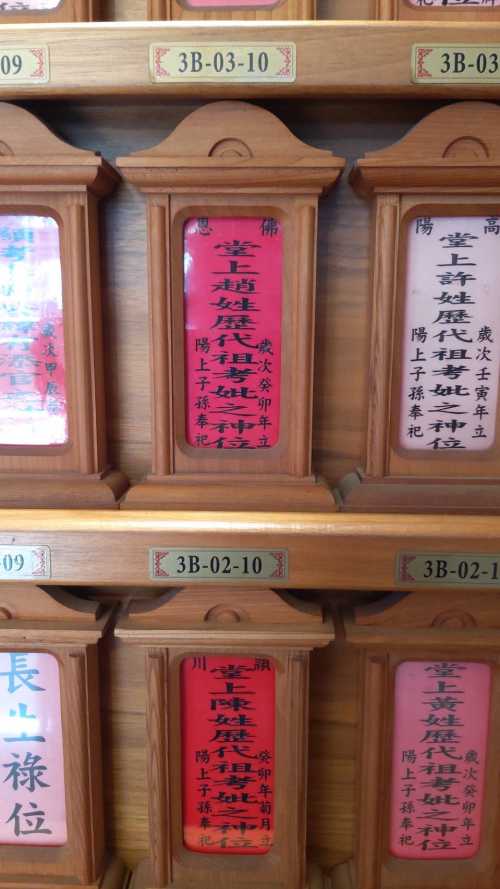 09
3B-03-10
3B-03
佛 恩
堂上趙姓歷代祖考妣之神位
歲次癸卯年立
陽上子孫奉祀
高 陽
堂上許姓歷代祖考妣之神位
歲次壬寅年立
陽上子孫奉祀
歲次甲辰
-09
3B-02-10
3B-02-1
長生祿位
潁 川
堂上陳姓歷代祖考妣之神位
癸卯年菊月立
陽上子孫奉祀
堂上黃姓歷代祖考妣之神位
歲次癸卯年立
陽上子孫奉祀